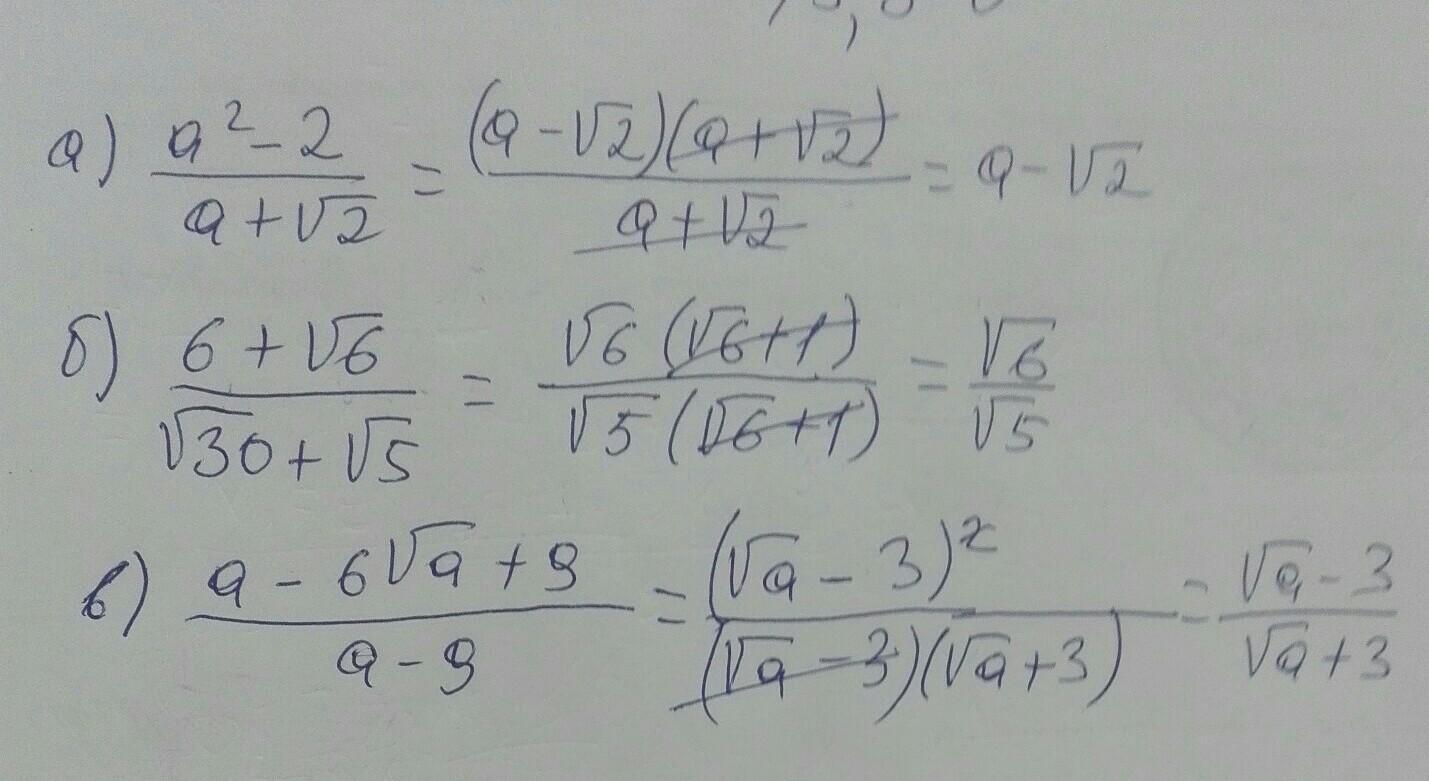 а) (a² - 2)/(a + √2) = ((a - √2)(a + √2))/(a + √2) = a - √2
б) (6 + √6)/(√30 + √5) = (√6 (√6 + 1))/(√5 (√6 + 1)) = √6/√5
в) (a - 6√a + 9)/(a - 9) = (√a - 3)²/((√a - 3)(√a + 3)) = (√a - 3)/(√a + 3)